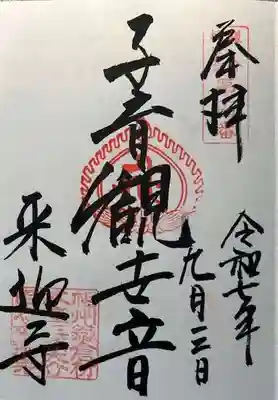 奉拝
令和七年
九月三日
子育觀世音
来迎寺